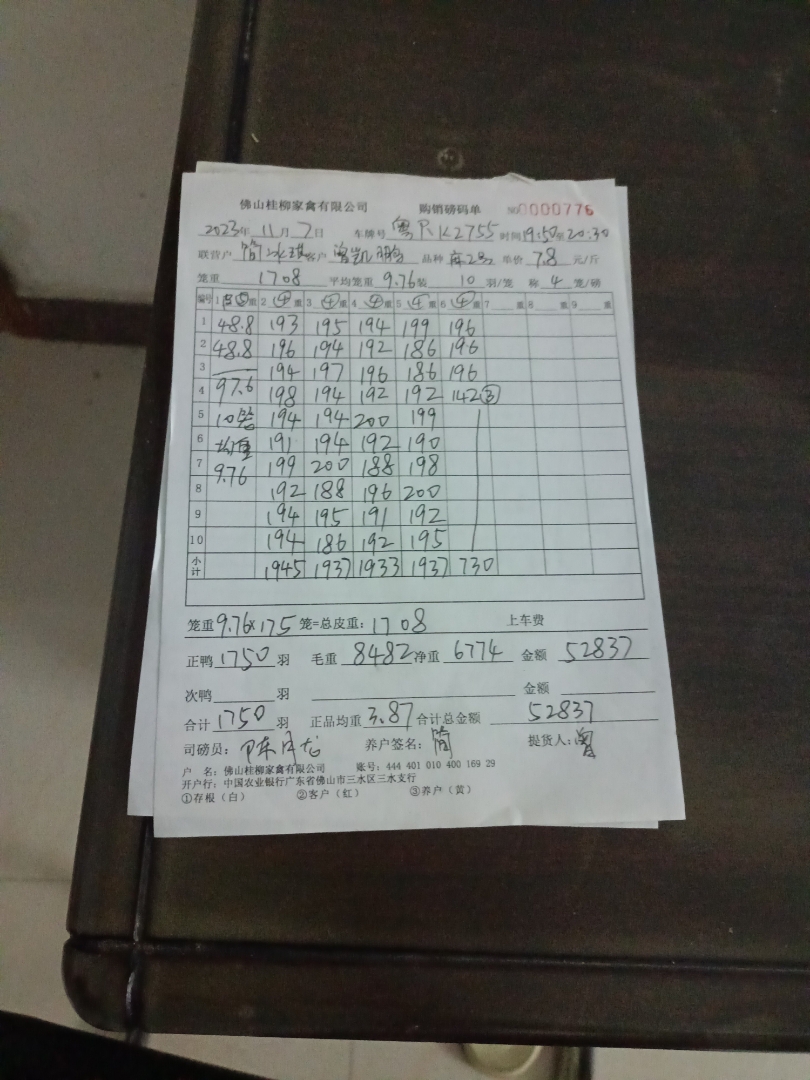 佛山桂柳家禽有限公司 购销磅码单 NO 0000776
2023年 11月 7日 车牌号 粤R K2755 时间 19:50至20:30
联营户 简冰琪 客户 曾凯鹏 品种 麻2号 单价 7.8 元/斤
笼重 1708 平均笼重 9.76 装 10 羽/笼 称 4 笼/磅
编号 1 ⑤重 2 ④重 3 ④重 4 ④重 5 ④重 6 ④重 7 重 8 重 9 重
1 48.8 193 195 194 199 196
2 48.8 196 194 192 186 196
3 194 197 196 186 196
4 97.6 198 194 192 192 142③
5 10笼 194 194 200 199
6 均重 191 194 192 190
7 9.76 199 200 188 198
8 192 188 196 200
9 194 195 191 192
10 194 186 192 195
小计 1945 1937 1933 1937 730
笼重 9.76×175 笼=总皮重: 1708 上车费
正鸭 1750 羽 毛重 8482 净重 6774 金额 52837
次鸭 羽 金额
合计 1750 羽 正品均重 3.87 合计总金额 52837
司磅员: 陈 养户签名: 简 提货人: 曾
户 名: 佛山桂柳家禽有限公司 账号: 444 401 010 400 169 29
开户行: 中国农业银行广东省佛山市三水区三水支行
①存根（白） ②客户（红） ③养户（黄）